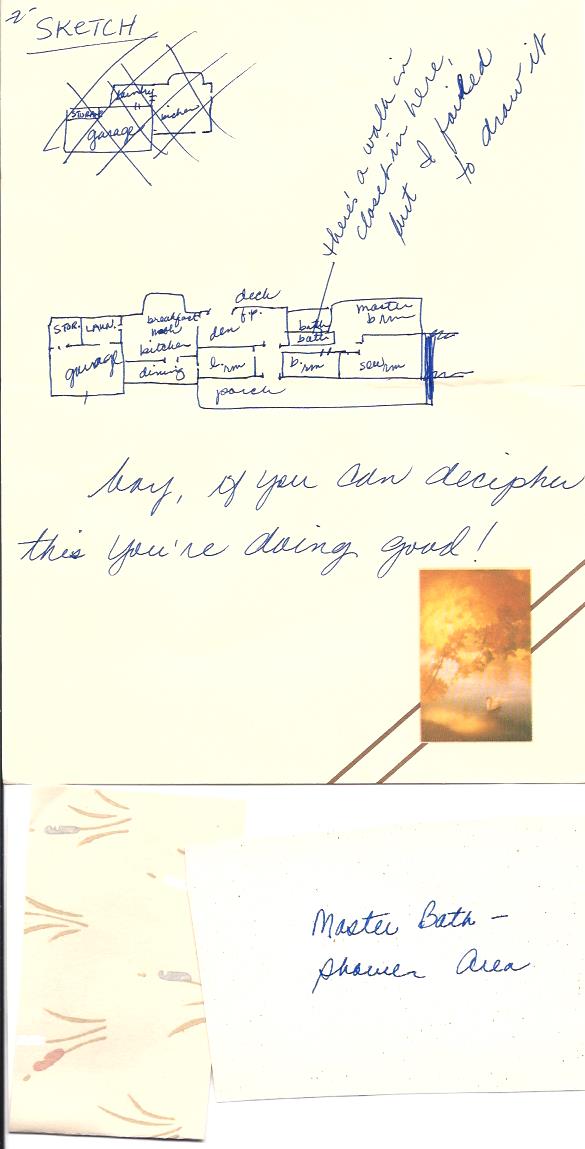 SKETCH
laundry
STORAGE
kitchen
garage
there's a walk in
closet in here,
but I failed
to draw it
deck
STOR. LAUN. breakfast nook den f.p. bath master b rm
garage kitchen bath
dining l. rm b. rm sew rm
porch
boy, if you can decipher
this you're doing good!
Master Bath -
Shower Area